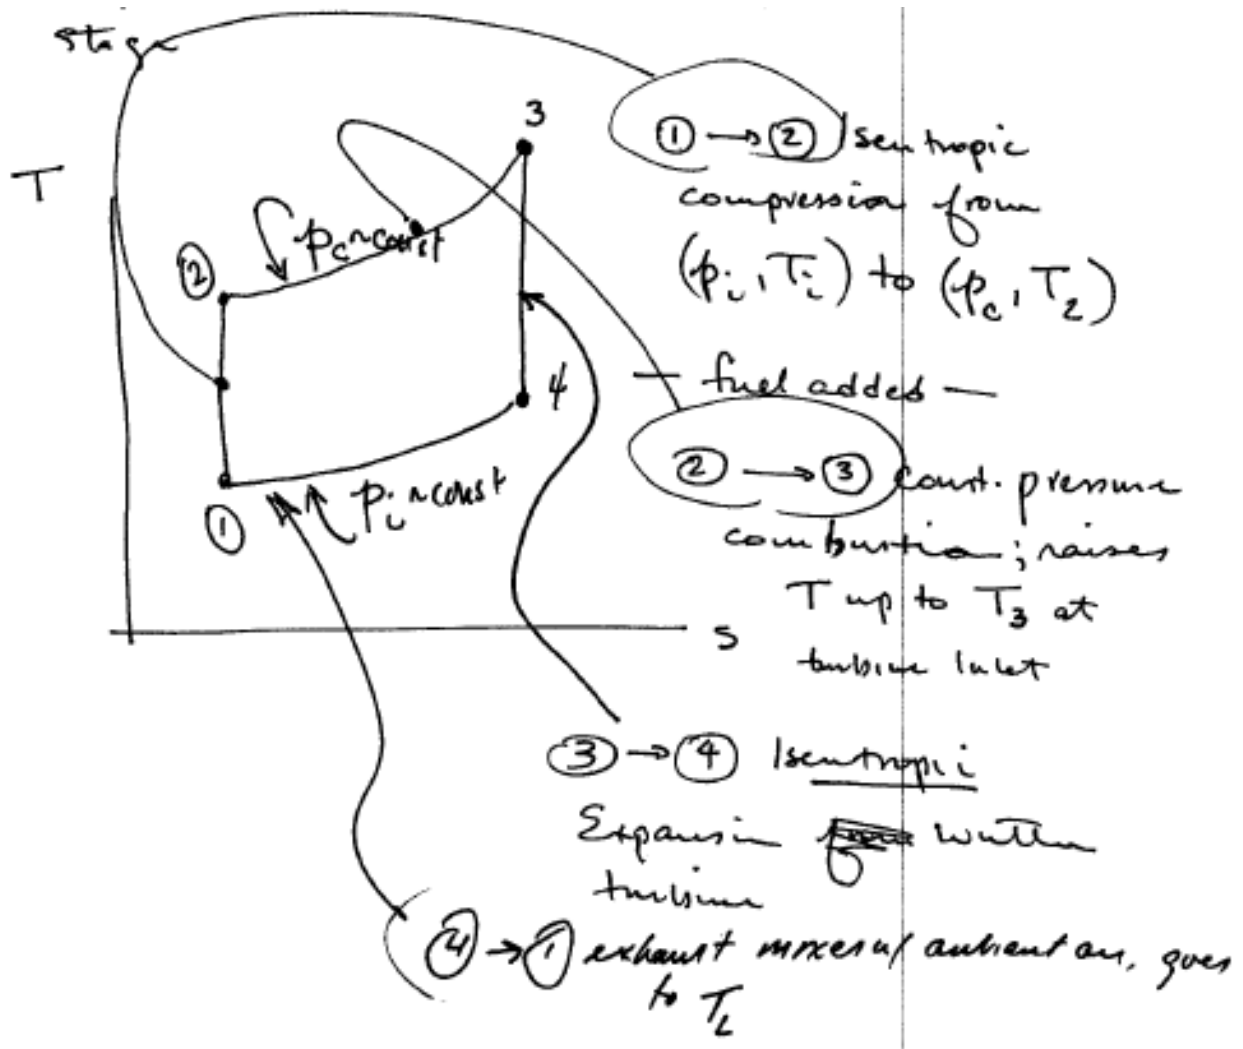 Stage
T
3
②
p_c ~ const
4
①
p_i ~ const
s
① → ② Isentropic
compression from
(p_i, T_i) to (p_c, T_2)
— fuel added —
② → ③ Const. pressure
combustion; raises
T up to T_3 at
turbine Inlet
③ → ④ Isentropi
Expansion within
turbine
④ → ① exhaust mixes w/ ambient air, goes
to T_i